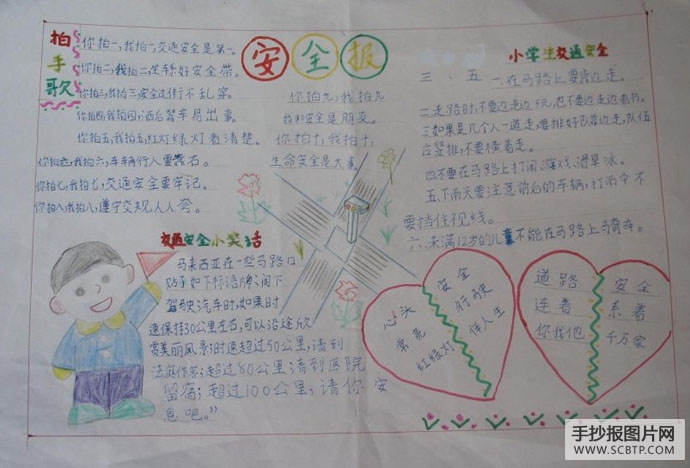 拍手歌
你拍一,我拍一,交通安全是第一。
你拍二,我拍二,坐轿好安全带。
你拍三,我拍三,安全过街不乱穿。
你拍四,我拍四,酒后驾车易出事。
你拍五,我拍五,红灯绿灯看清楚。
你拍六,我拍六,车车辆行人要靠右。
你拍七,我拍七,交通安全要牢记。
你拍八,我拍八,遵守交规人人夸。
安全报
你拍九,我拍九
我和安全是朋友。
你拍十,我拍十,
生命安全是大事
小学生交通安全
三、五 一在马路上要靠边走。
二走路时,不要边走边玩,也不要边走边看书。
三如果是几个人一道走,要排好队靠边走,队伍
应竖排,不要横着走。
四不要在马路上打闹、游戏、滑旱冰。
五、下雨天要注意前后的车辆,打雨伞不
要挡住视线。
六、未满12岁的儿童不能在马路上骑车。
交通安全小笑话
马来西亚在一些马路口
如下标语牌:阁下
驾驶汽车时,如果时
速保持30公里左右,可以沿途欣
赏美丽风景;时速超过50公里,请到
法庭作客;超过80公里请到医院
留宿;超过100公里,请你安
息吧。"
心头
常亮
红绿灯
安全
行驶
伴人生
道路
连着
你我他
安全
系着
千万家
手抄报图片网
WWW.SCBTP.COM